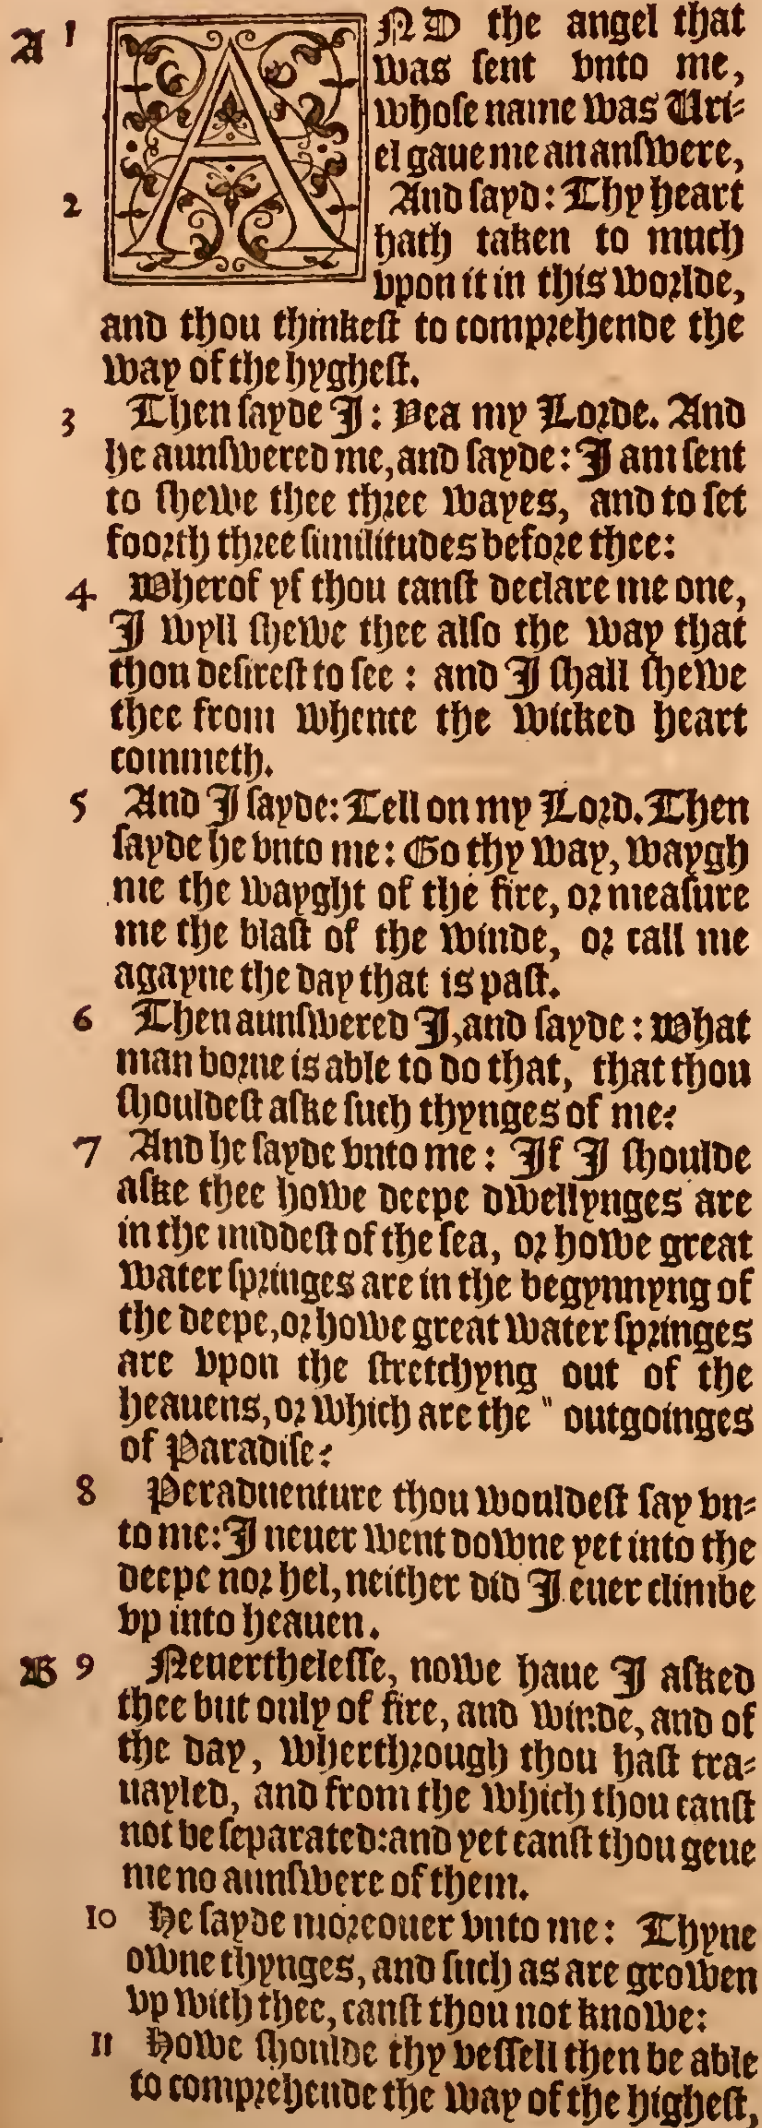 A 1 AND the angel that
was ſent vnto me,
whoſe name was Uri-
el gaue me an anſwere,
2 And ſayd: Thy heart
hath taken to much
vpon it in this worlde,
and thou thinkeſt to comprehende the
way of the hygheſt.
3 Then ſayde I: Yea my Lorde. And
he aunſwered me, and ſayde: I am ſent
to ſhewe thee three wayes, and to ſet
foorth three ſimilitudes before thee:
4 Wherof yf thou canſt declare me one,
I wyll ſhewe thee alſo the way that
thou deſireſt to ſee: and I ſhall ſhewe
thee from whence the wicked heart
commeth.
5 And I ſayde: Tell on my Lord. Then
ſayde he vnto me: Go thy way, waygh
me the wayght of the fire, or meaſure
me the blaſt of the winde, or call me
agayne the day that is paſt.
6 Then aunſwered I, and ſayde: What
man borne is able to do that, that thou
ſhouldeſt aſke ſuch thynges of me?
7 And he ſayde vnto me: If I ſhoulde
aſke thee howe deepe dwellynges are
in the middeſt of the ſea, or howe great
water ſpringes are in the begynnyng of
the deepe, or howe great water ſpringes
are vpon the ſtretchyng out of the
heauens, or which are the " outgoinges
of Paradiſe?
8 Peraduenture thou wouldeſt ſay vn-
to me: I neuer went downe yet into the
deepe nor hel, neither did I euer climbe
vp into heauen.
B 9 Neuertheleſſe, nowe haue I aſked
thee but only of fire, and winde, and of
the day, wherthrough thou haſt tra-
uayled, and from the which thou canſt
not be ſeparated: and yet canſt thou geue
me no aunſwere of them.
10 He ſayde moreouer vnto me: Thyne
owne thynges, and ſuch as are growen
vp with thee, canſt thou not knowe:
11 Howe ſhoulde thy veſſell then be able
to comprehende the way of the higheſt,